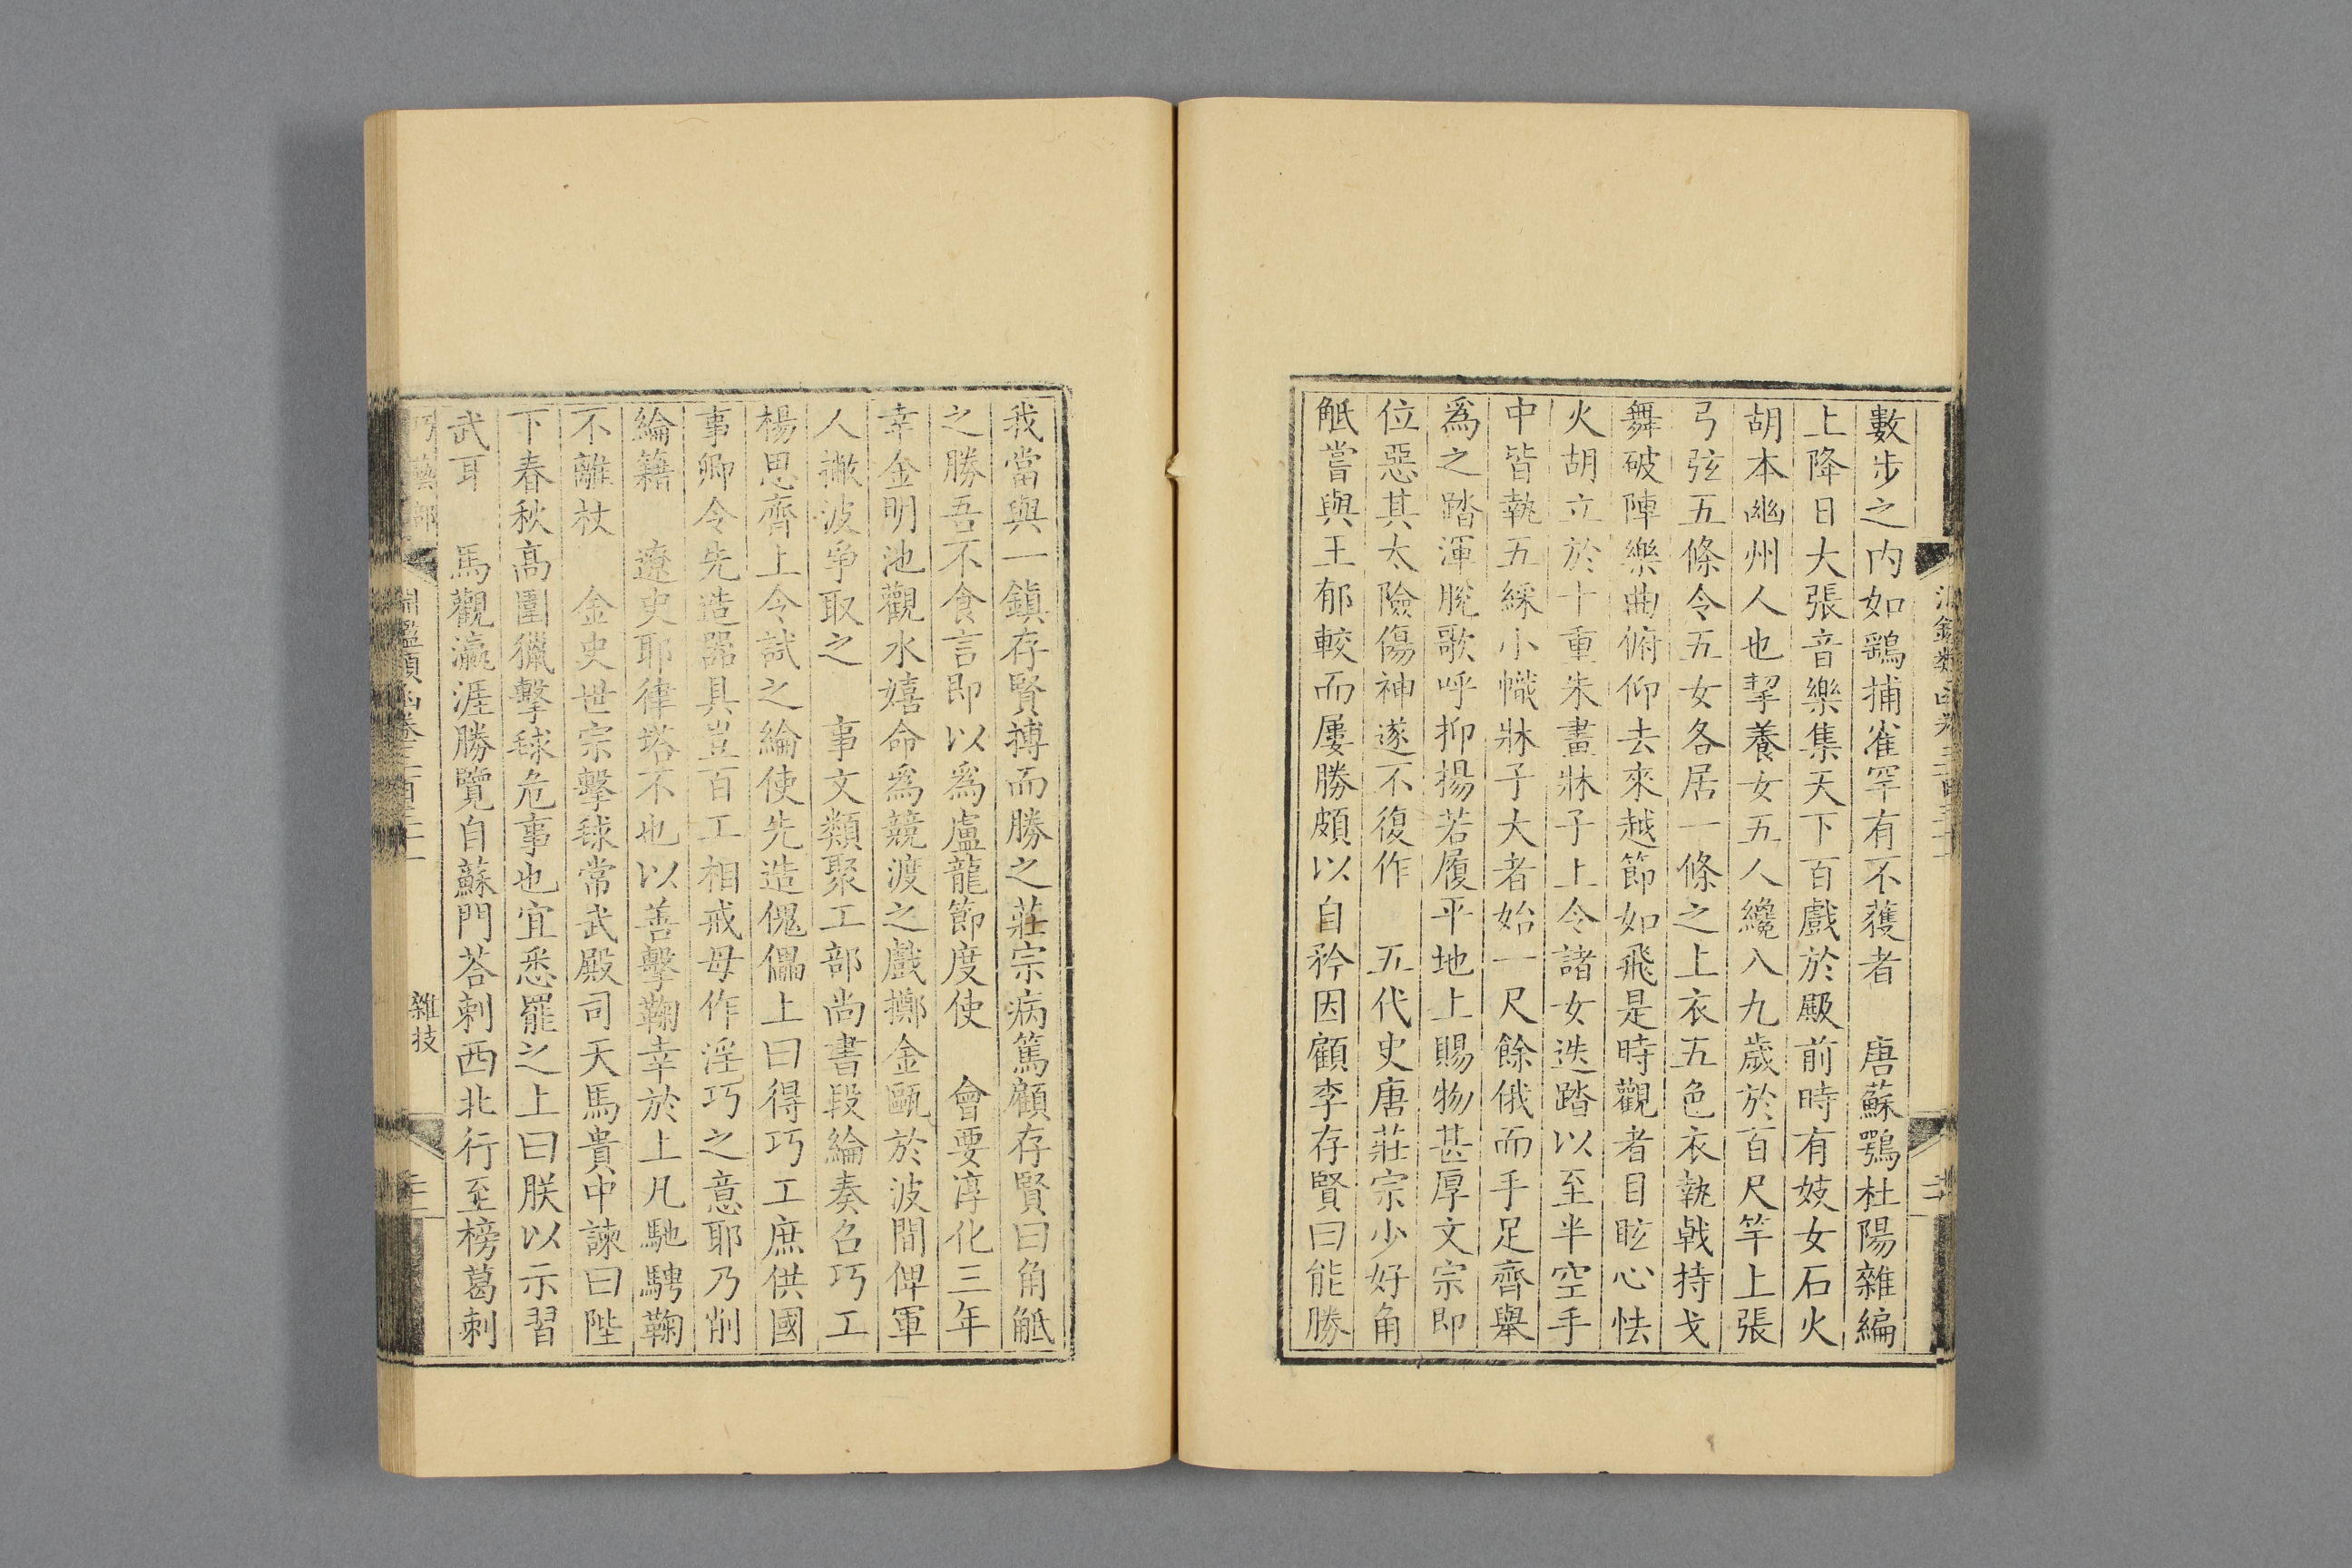 數步之内如鷂捕雀罕有不獲者　唐蘇鶚杜陽雜編
上降日大張音樂集天下百戲於殿前時有妓女石火
胡本幽州人也挈養女五人纔八九歲於百尺竿上張
弓弦五條令五女各居一條之上衣五色衣執戟持戈
舞破陣樂曲俯仰去來越節如飛是時觀者目眩心怯
火胡立於十重朱畫牀子上令諸女迭踏以至半空手
中皆執五綵小幟牀子大者始一尺餘俄而手足齊舉
爲之踏渾脫歌呼抑揚若履平地上賜物甚厚文宗即
位惡其太險傷神遂不復作　五代史唐莊宗少好角
觝嘗與王郁較而屢勝頗以自矜因顧李存賢曰能勝
我當與一鎮存賢搏而勝之莊宗病篤顧存賢曰角觝
之勝吾不食言即以爲盧龍節度使　會要淳化三年
幸金明池觀水嬉命爲競渡之戲擲金甌於波間俾軍
人撇波争取之　事文類聚工部尚書段綸奏召巧工
楊思齊上令試之綸使先造傀儡上曰得巧工庶供國
事卿令先造噐具豈百工相戒毋作淫巧之意耶乃削
綸籍　遼史耶律塔不也以善擊鞠幸於上凡馳騁鞠
不離杖　金史世宗擊毬常武殿司天馬貴中諫曰陛
下春秋高圍獵擊毬危事也宜悉罷之上曰朕以示習
武耳　馬觀瀛涯勝覽自蘇門荅剌西北行至榜葛剌
巧藝部
淵鑑類函卷三百三十
雜技